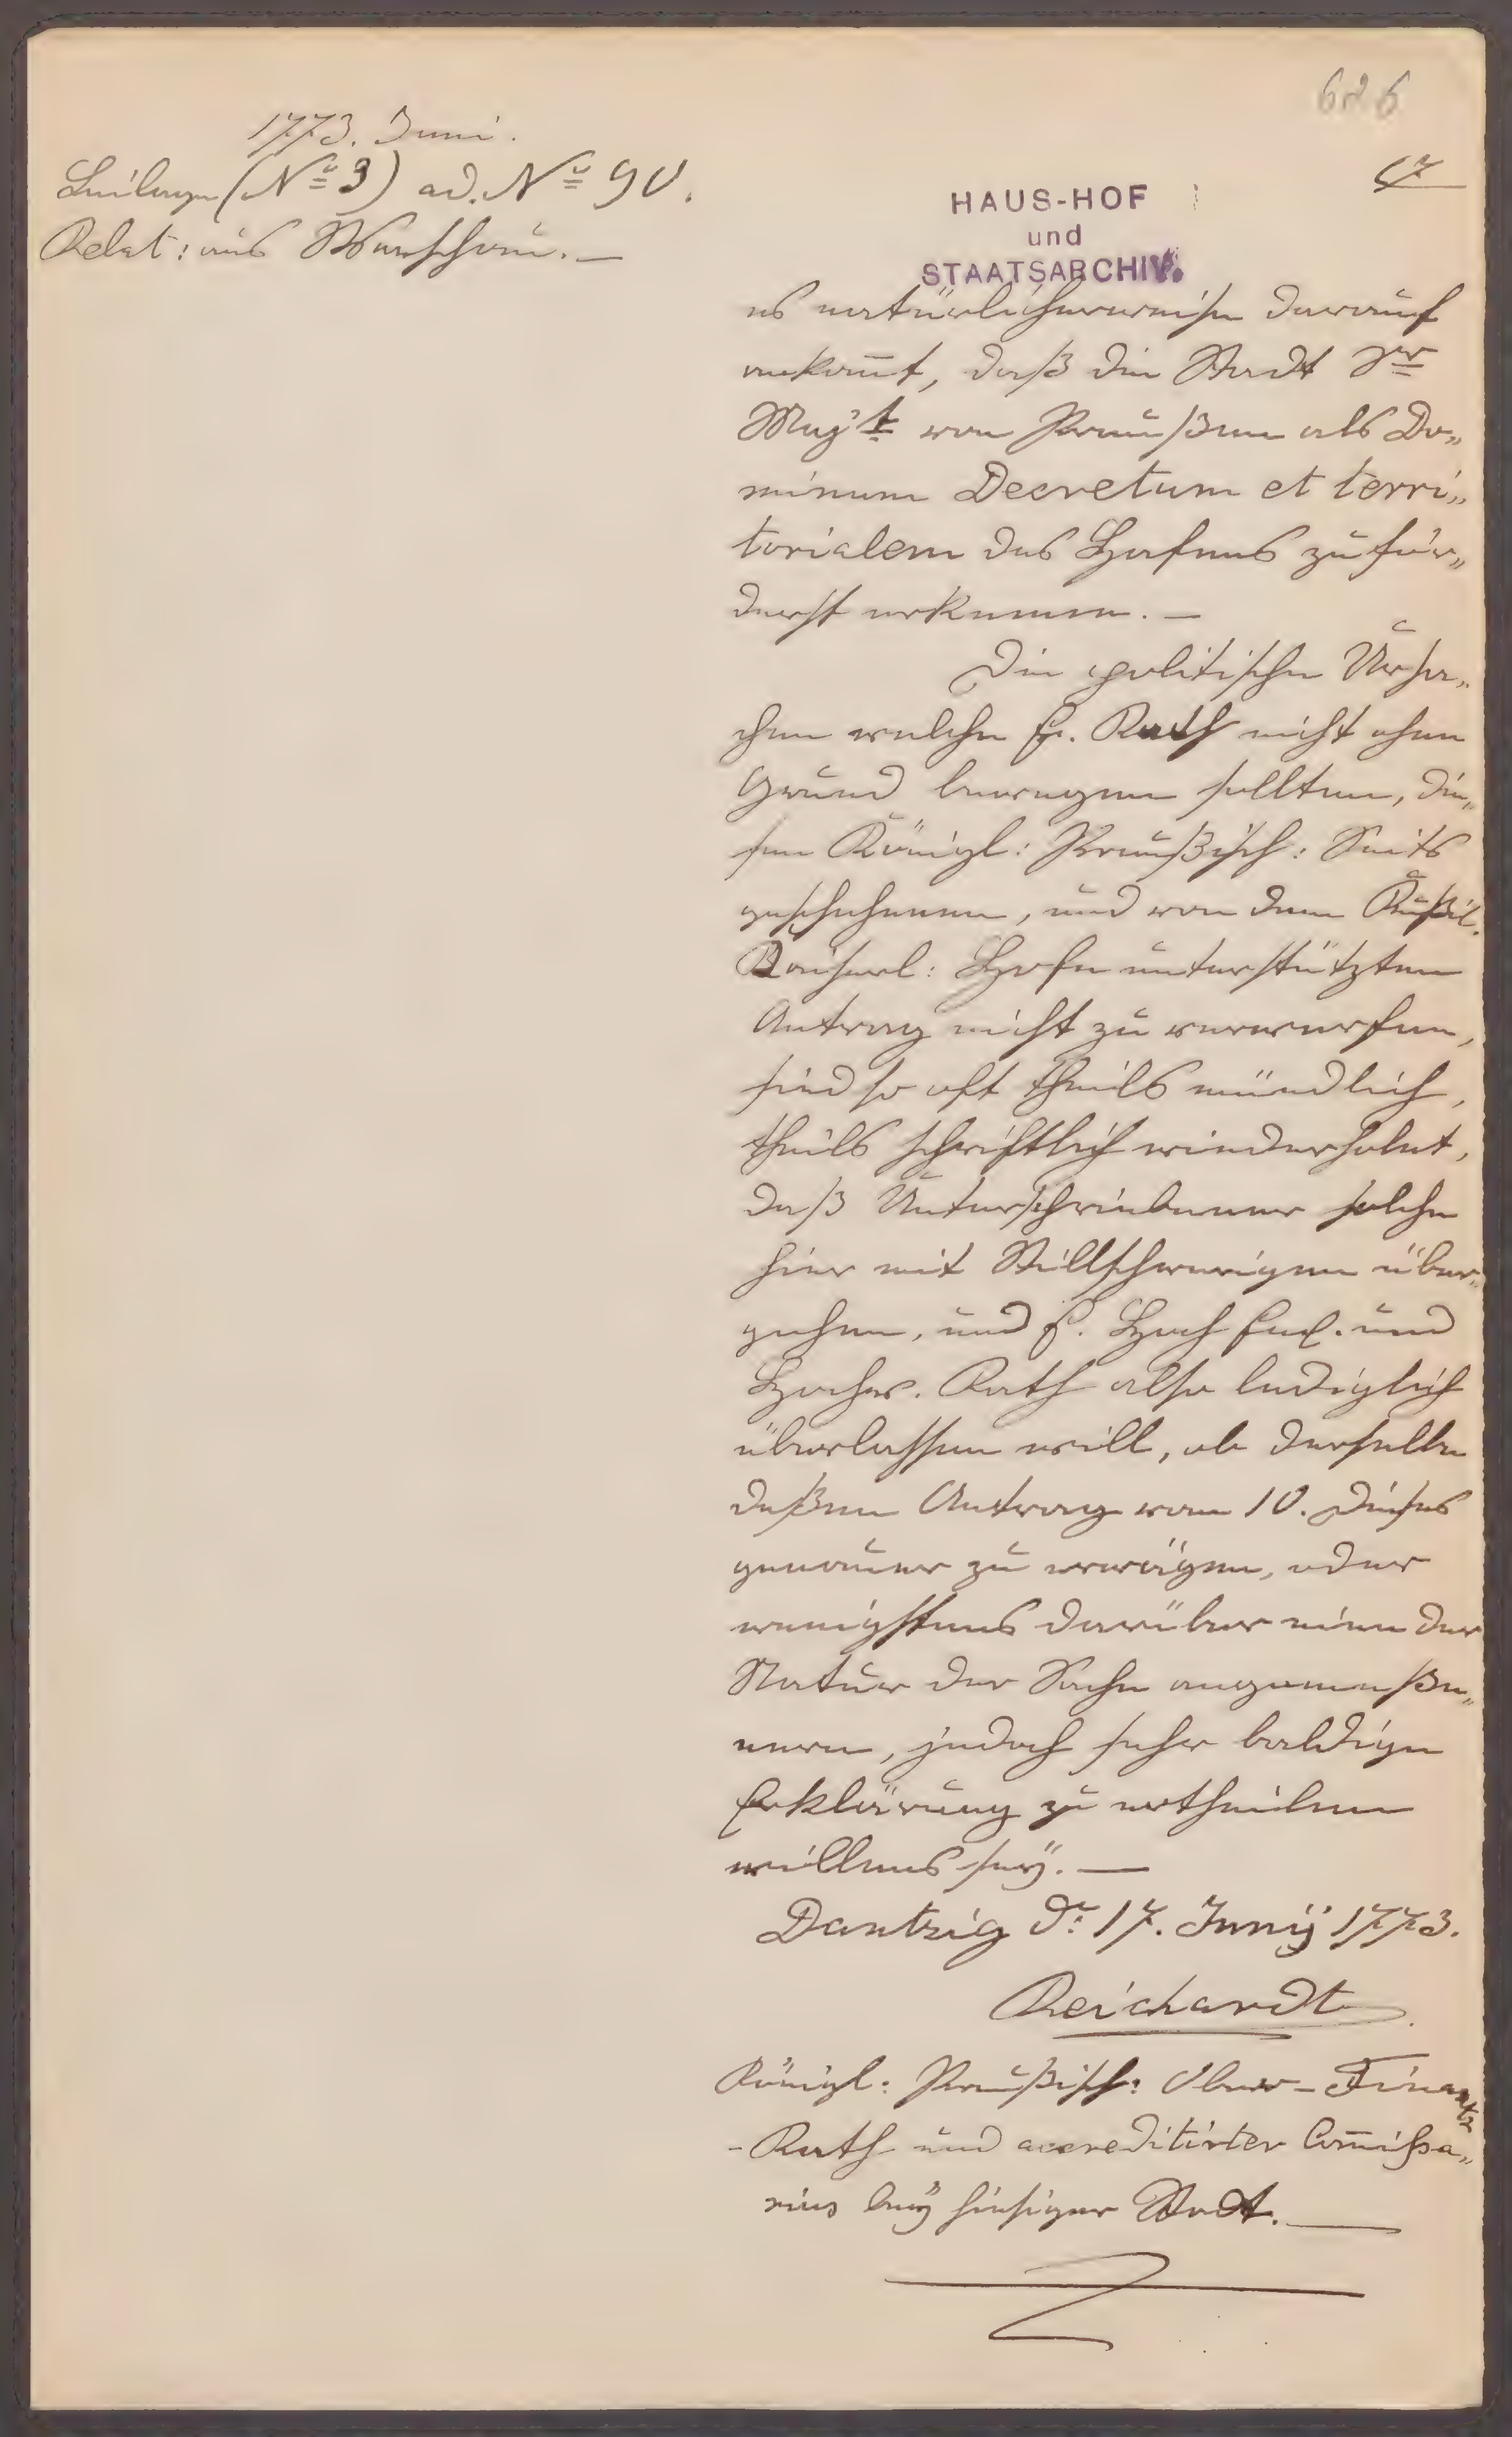 626
1773. Juni.
Beilage (Nº 3) ad. Nº 90.
Relat: aus Warschau. —
HAUS-HOF
und
STAATSARCHIV.
es natürlicherweise darauf
ankom̄t, daß die Stadt Sr
Majt von Preußen als Do„
minum Decretum et terri„
torialem des Hafens zuför„
derst erkenne. —
Die politischen Ursa„
chen welche E. Rath nicht ohne
Grund bewegen sollten, die„
sen Königl: Preußisch: Seits
geschehenen, und von dem Rußil.
Kaiserl: Hofe unterstützten
Antrag nicht zu verwerfen,
sind so oft theils mündlich,
theils schriftlich wiederholet,
daß Unterschriebener solche
hier mit Stillschweigen über„
gehen, und E. Hoch Edl. und
Hochw. Rath also lediglich
überlassen will, ob derselbe
deßen Antrag vom 10. dieses
genauer zu erwägen, oder
wenigstens darüber eine der
Natur der Sache angemeße„
nere, jedoch sehr baldige
Erklärung zu ertheilen
willens seÿ. —
Dantzig d: 17. Junÿ 1773.
Reichardt
Königl: Preußisch: Ober-Finantz
-Rath und accreditirter Com̄ißa„
rius beÿ hiesiger Stadt. —